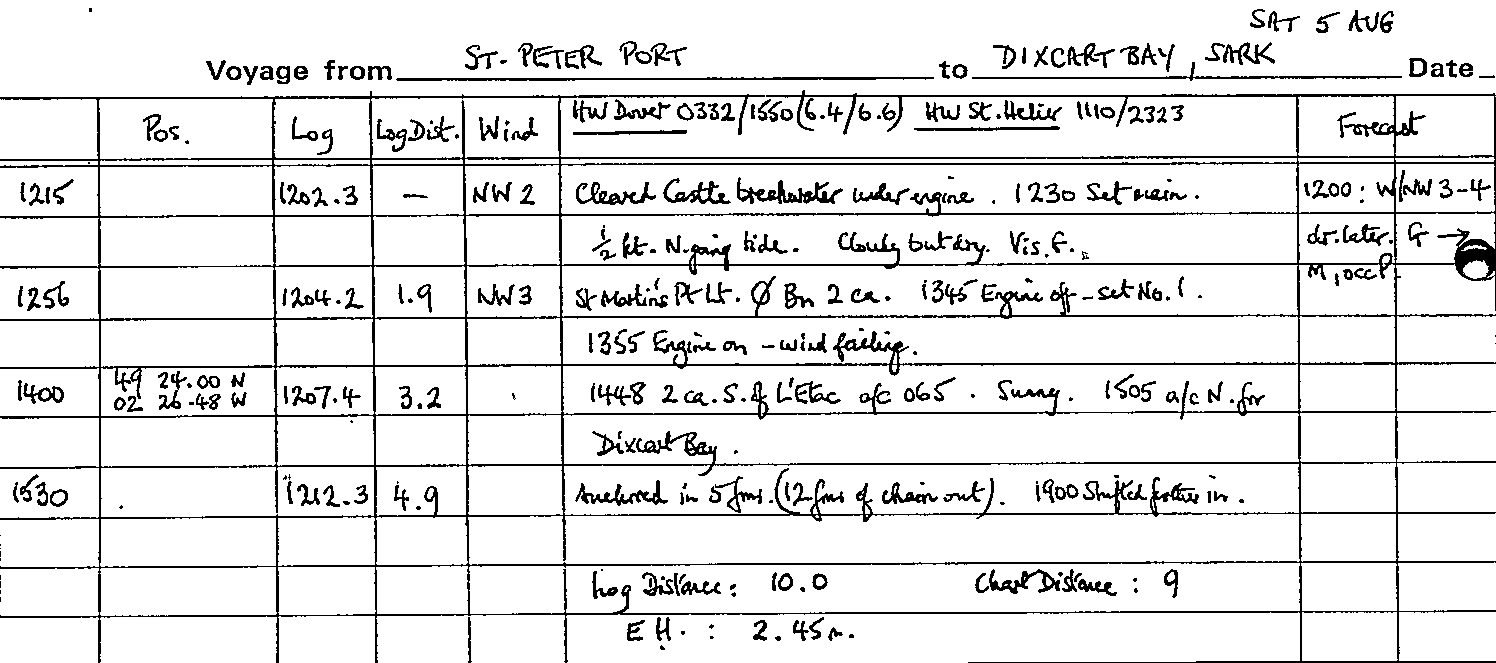 SAT 5 AUG
Voyage from ST. PETER PORT to DIXCART BAY, SARK Date
Pos. Log Log Dist. Wind HW Dover 0332/1550 (6.4/6.6) HW St. Helier 1110/2323 Forecast
1215 1202.3 — NW 2 Cleared Castle breakwater under engine. 1230 Set main. 1200: W/NW 3-4
½ kt. N. going tide. Cloudy but dry. Vis. G. dr. later. G →
M, occ P.
1256 1204.2 1.9 NW 3 St Martin's Pt Lt. Ø Bn 2 ca. 1345 Engine off - set No. 1.
1355 Engine on - wind failing.
1400 49 24.00 N 1207.4 3.2 1448 2 ca. S. of L'Etac a/c 065. Sunny. 1505 a/c N. for
02 26.48 W
Dixcart Bay.
1530 1212.3 4.9 Anchored in 5 fms. (12 fms of chain out). 1900 Shifted further in.
Log Distance: 10.0 Chart Distance: 9
E H. : 2.45m.